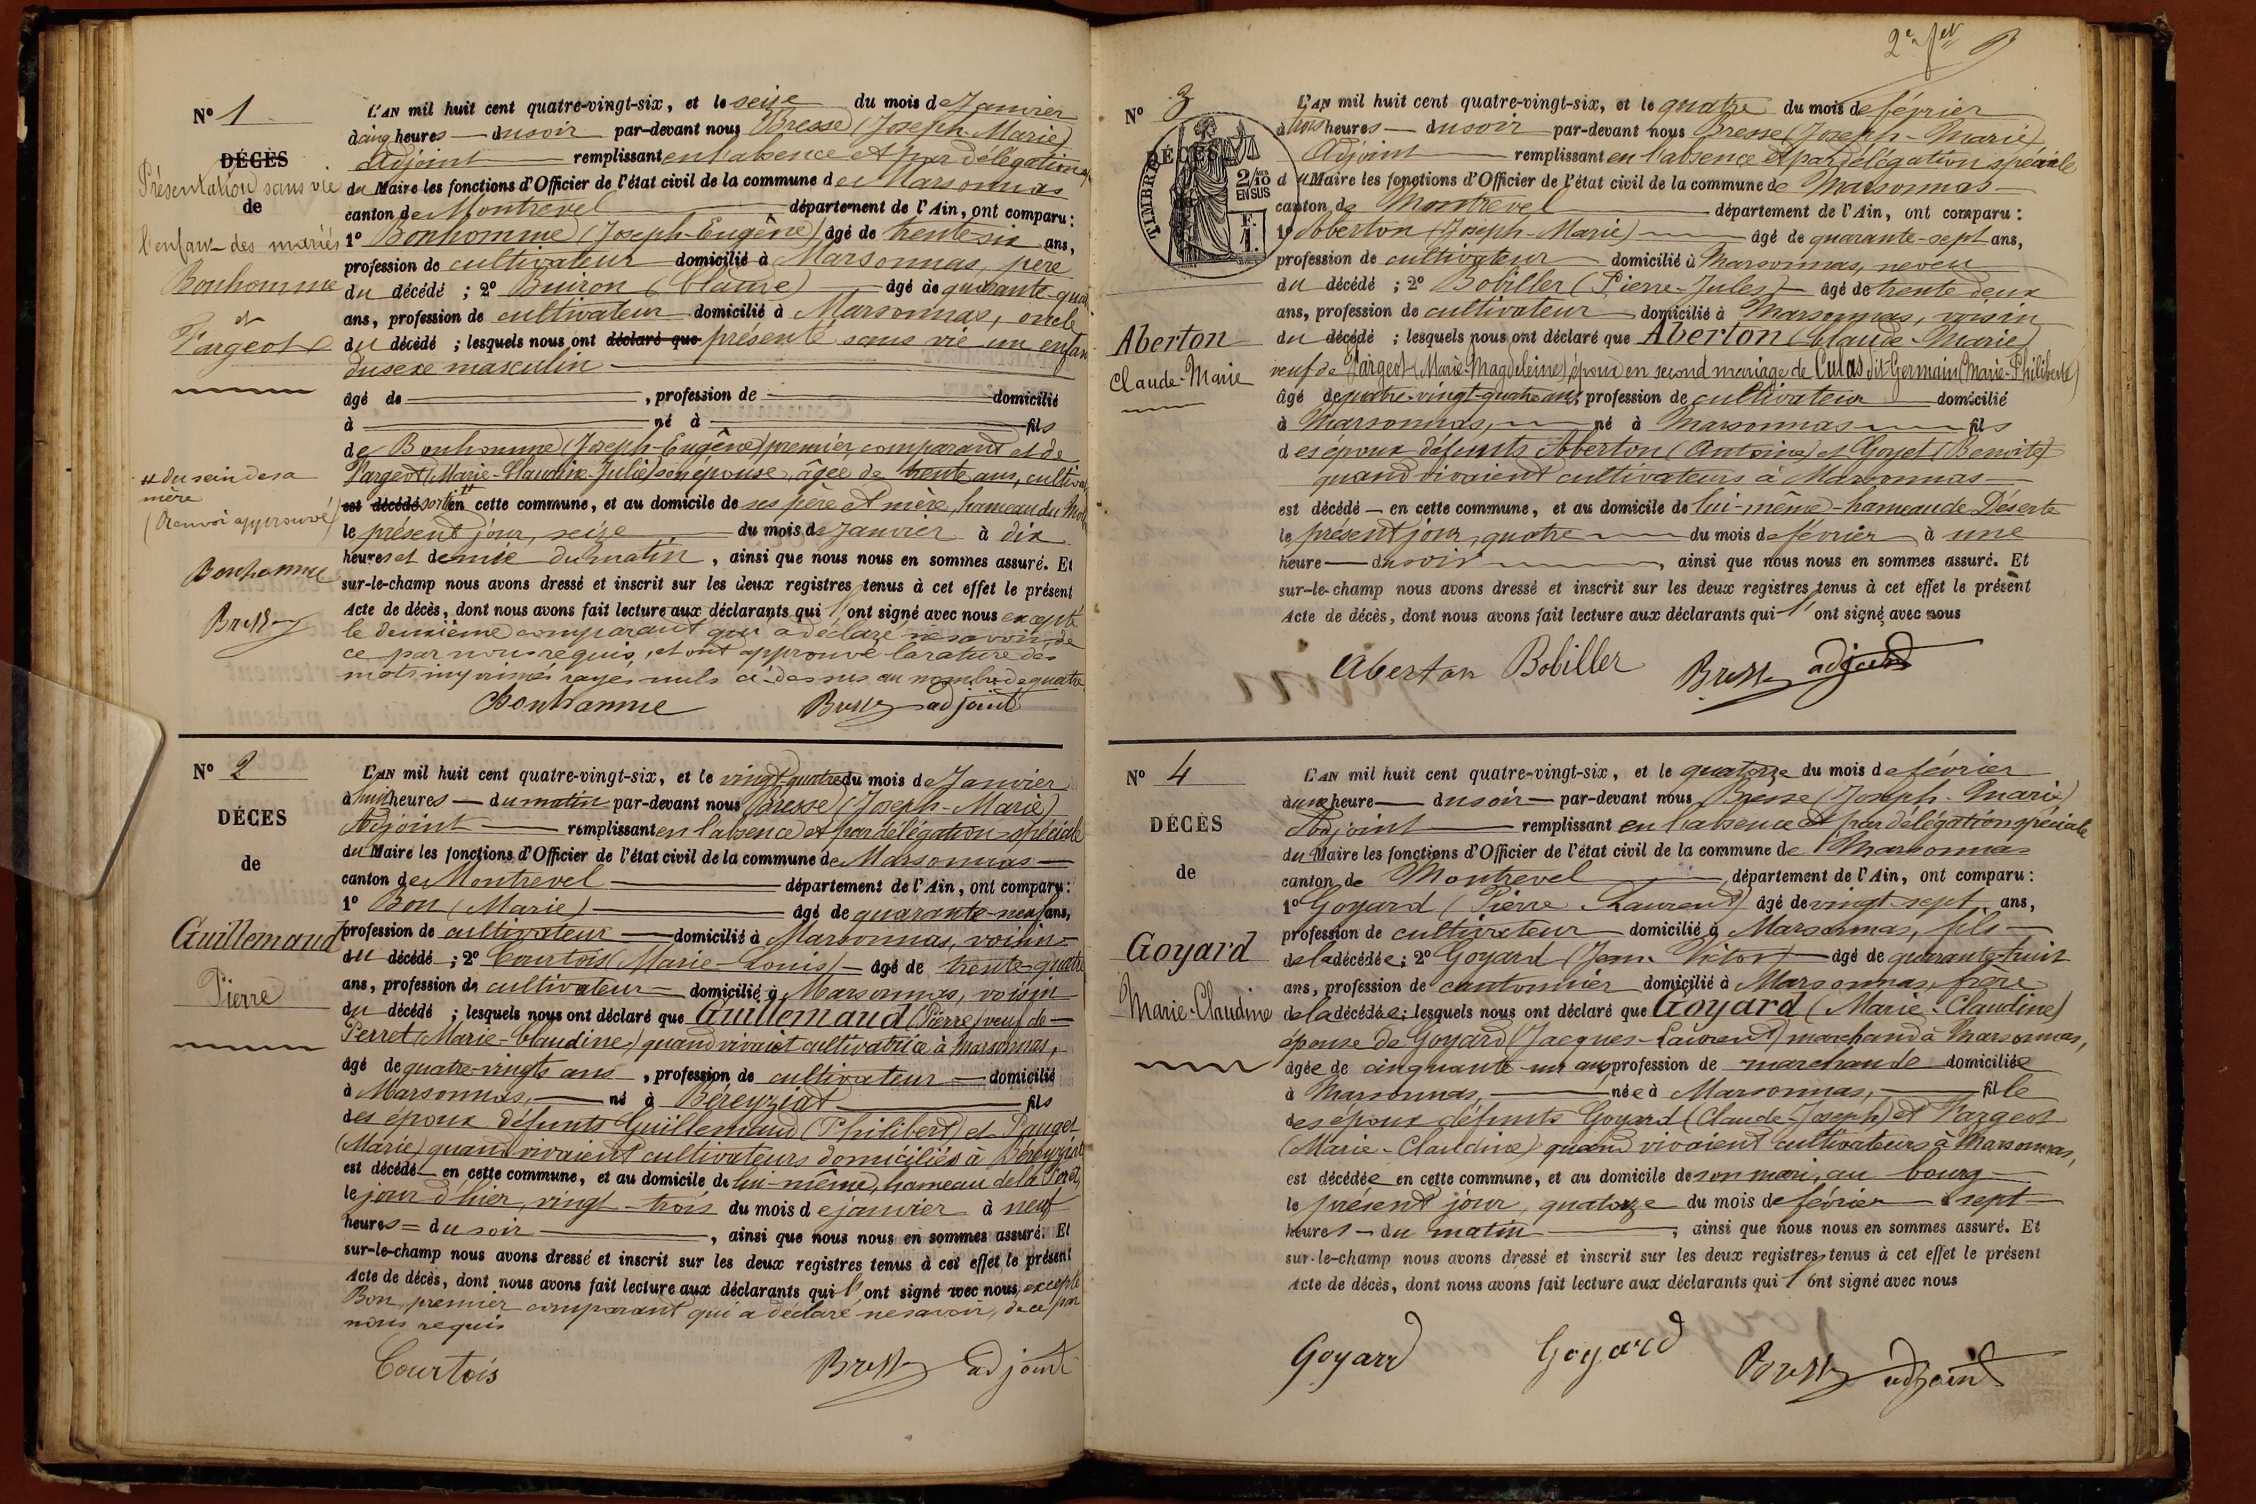 Nº 1
DÉCÈS
Présentation sans vie
de
l'enfant des mariés
Bonhomme
et
Pargeot
L'AN mil huit cent quatre-vingt-six, et le seize du mois de Janvier
à cinq heures du soir par-devant nous Bresse (Joseph-Marie)
Adjoint remplissant en l'absence et par délégation
du Maire les fonctions d'Officier de l'état civil de la commune de Marsonnas
canton de Montrevel département de l'Ain, ont comparu :
1º Bonhomme (Joseph-Eugène) âgé de trente-six ans,
profession de cultivateur domicilié à Marsonnas, père
du décédé ; 2º Buiron (Claude) âgé de quarante-quatre
ans, profession de cultivateur domicilié à Marsonnas, oncle
du décédé ; lesquels nous ont déclaré que présenté sans vie un enfant
du sexe masculin
âgé de , profession de domicilié
à né à fils
de Bonhomme (Joseph-Eugène) premier comparant et de
Pargeot (Marie-Claudine-Julie) son épouse, âgée de trente ans,
est décédé sorti en cette commune, et au domicile de ses père et mère, hameau du
le présent jour, seize du mois de Janvier à dix
heures et demie du matin, ainsi que nous nous en sommes assuré. Et
sur-le-champ nous avons dressé et inscrit sur les deux registres tenus à cet effet le présent
Acte de décès, dont nous avons fait lecture aux déclarants qui l'ont signé avec nous excepté
le deuxième comparant qui a déclaré ne savoir, de
ce par nous requis, et ont approuvé la rature des
mots imprimés rayés nuls ci-dessus au nombre de quatre
Bonhomme Bresse adjoint
# du sein de sa
mère
(Renvoi approuvé)
Bonhomme
Bresse
Nº 2
DÉCES
de
Guillemaud
Pierre
L'AN mil huit cent quatre-vingt-six, et le vingt-quatre du mois de Janvier
à huit heures du matin par-devant nous Bresse (Joseph-Marie)
Adjoint remplissant en l'absence et par délégation spéciale
du Maire les fonctions d'Officier de l'état civil de la commune de Marsonnas
canton de Montrevel département de l'Ain, ont comparu :
1º Bon (Marie) âgé de quarante-neuf ans,
profession de cultivateur domicilié à Marsonnas, voisin
du décédé ; 2º Courtois (Marie-Louis) âgé de trente-quatre
ans, profession de cultivateur domicilié à Marsonnas, voisin
du décédé ; lesquels nous ont déclaré que Guillemaud (Pierre) veuf de
Perret (Marie-Claudine) quand vivait cultivatrice à Marsonnas,
âgé de quatre-vingts ans, profession de cultivateur domicilié
à Marsonnas, né à Béreyziat fils
des époux défunts Guillemaud (Philibert) et Pauget
(Marie) quand vivaient cultivateurs domiciliés à Béreyziat
est décédé en cette commune, et au domicile de lui-même, hameau de la
le jour d'hier, vingt-trois du mois de janvier à neuf
heures du soir, ainsi que nous nous en sommes assuré. Et
sur-le-champ nous avons dressé et inscrit sur les deux registres tenus à cet effet le présent
Acte de décès, dont nous avons fait lecture aux déclarants qui l'ont signé avec nous, excepté
Bon, premier comparant qui a déclaré ne savoir, de ce par
nous requis
Courtois Bresse adjoint
2e
Nº 3
DÉCÈS
TIMBRE
2/10
EN SUS
F.
1.
Aberton
Claude-Marie
L'AN mil huit cent quatre-vingt-six, et le quatre du mois de février
à trois heures du soir par-devant nous Bresse (Joseph-Marie)
Adjoint remplissant en l'absence et par délégation spéciale
du Maire les fonctions d'Officier de l'état civil de la commune de Marsonnas
canton de Montrevel département de l'Ain, ont comparu :
1º Aberton (Joseph-Marie) âgé de quarante-sept ans,
profession de cultivateur domicilié à Marsonnas, neveu
du décédé ; 2º Bobiller (Pierre-Jules) âgé de trente deux
ans, profession de cultivateur domicilié à Marsonnas, voisin
du décédé ; lesquels nous ont déclaré que Aberton (Claude-Marie)
veuf de Pargeot (Marie-Magdeleine), époux en second mariage de Culas dit Germain (Marie-Philiberte)
âgé de quatre-vingt-quatre ans, profession de cultivateur domicilié
à Marsonnas, né à Marsonnas fils
des époux défunts Aberton (Antoine) et Goyet (Benoite)
quand vivaient cultivateurs à Marsonnas
est décédé en cette commune, et au domicile de lui-même hameau de Déserte
le présent jour, quatre du mois de février à une
heure du soir, ainsi que nous nous en sommes assuré. Et
sur-le-champ nous avons dressé et inscrit sur les deux registres tenus à cet effet le présent
Acte de décès, dont nous avons fait lecture aux déclarants qui l'ont signé avec nous
Aberton Bobiller Bresse adjoint
Nº 4
DÉCÈS
de
Goyard
Marie-Claudine
L'AN mil huit cent quatre-vingt-six, et le quatorze du mois de février
à une heure du soir par-devant nous Bresse (Joseph-Marie)
Adjoint remplissant en l'absence et par délégation spéciale
du Maire les fonctions d'Officier de l'état civil de la commune de Marsonnas
canton de Montrevel département de l'Ain, ont comparu :
1º Goyard (Pierre Laurent) âgé de vingt-sept ans,
profession de cultivateur domicilié à Marsonnas, fils
de la décédée ; 2º Goyard (Jean Victor) âgé de quarante-huit
ans, profession de cantonnier domicilié à Marsonnas, frère
de la décédée ; lesquels nous ont déclaré que Goyard (Marie-Claudine)
épouse de Goyard (Jacques-Laurent) marchand à Marsonnas,
âgée de cinquante-un ans, profession de marchande domiciliée
à Marsonnas, née à Marsonnas, fille
des époux défunts Goyard (Claude-Joseph) et Pargeot
(Marie-Claudine) quand vivaient cultivateurs à Marsonnas,
est décédée en cette commune, et au domicile de son mari, au bourg
le présent jour, quatorze du mois de février à sept
heures du matin, ainsi que nous nous en sommes assuré. Et
sur-le-champ nous avons dressé et inscrit sur les deux registres tenus à cet effet le présent
Acte de décès, dont nous avons fait lecture aux déclarants qui l'ont signé avec nous
Goyard Goyard Bresse adjoint